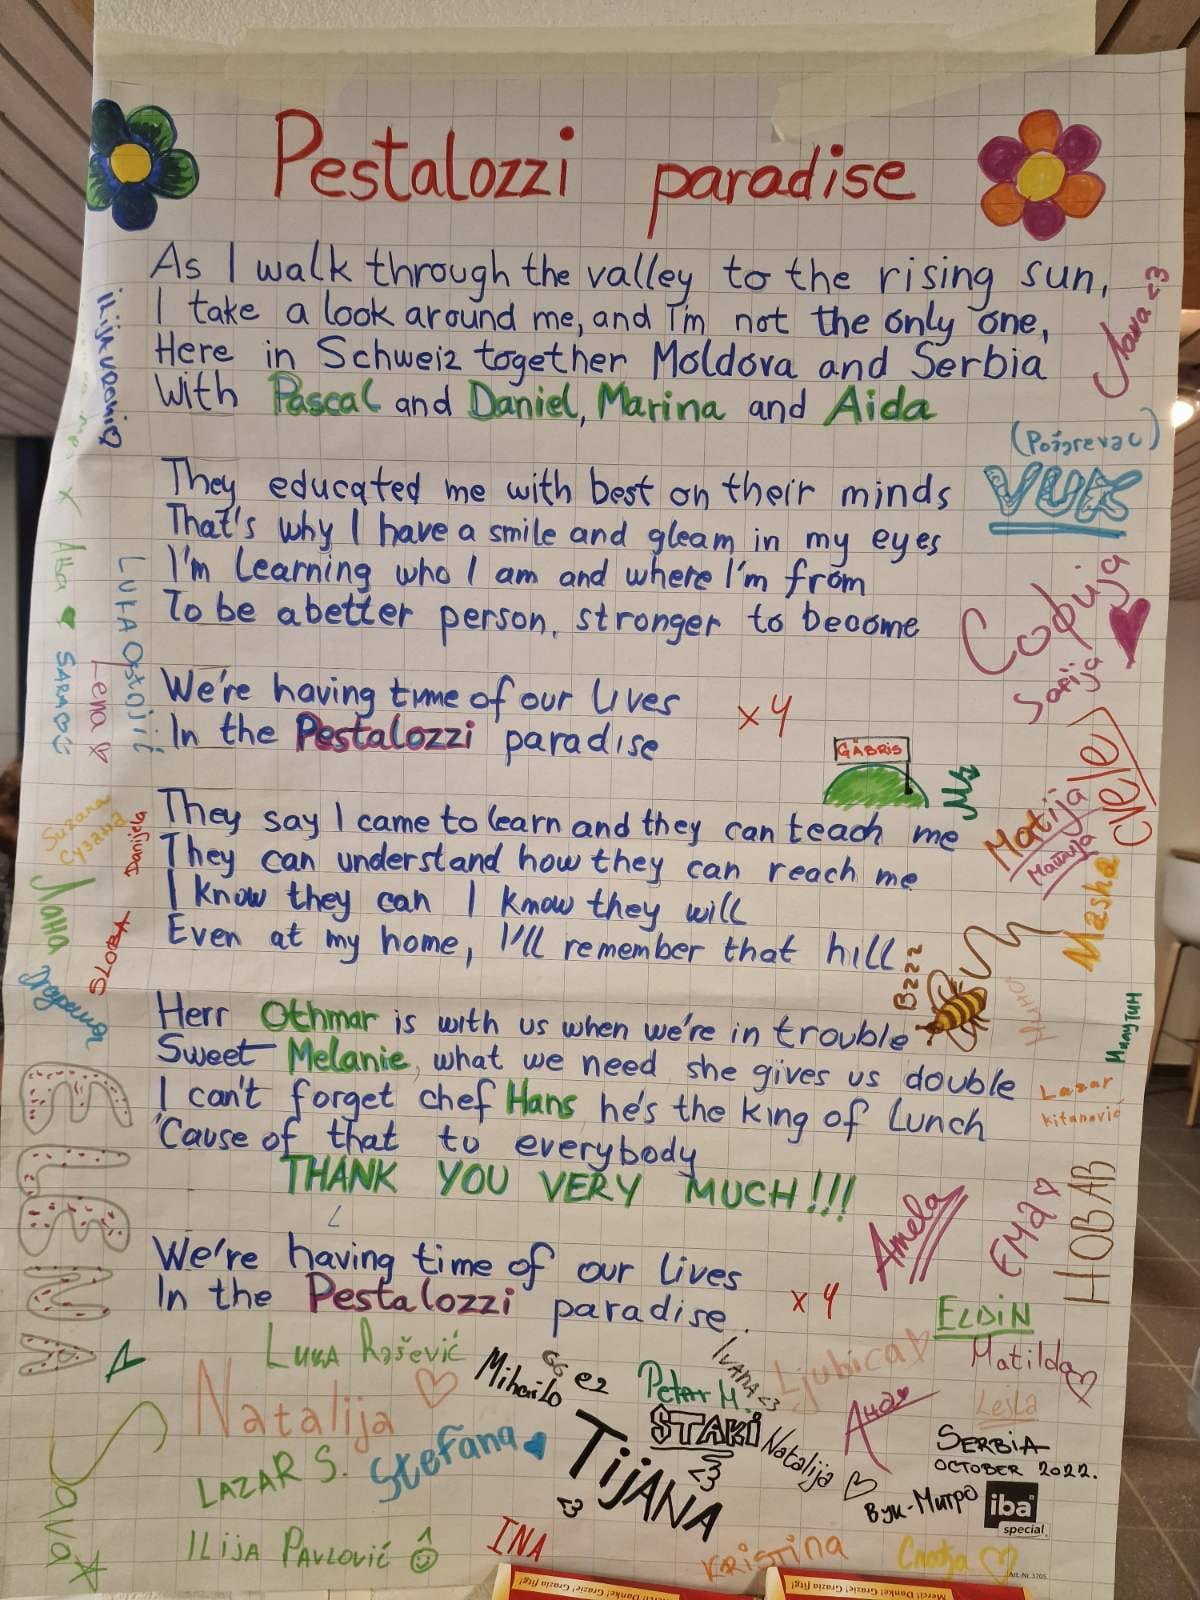 Pestalozzi paradise
As I walk through the valley to the rising sun,
I take a look around me, and I'm not the only one,
Here in Schweiz together Moldova and Serbia
With Pascal and Daniel, Marina and Aida
They educated me with best on their minds
That's why I have a smile and gleam in my eyes
I'm learning who I am and where I'm from
To be a better person, stronger to become
We're having time of our lives
In the Pestalozzi paradise
x4
GÄBRIS
They say I came to learn and they can teach me
They can understand how they can reach me
I know they can I know they will
Even at my home, I'll remember that hill
Bzzz
Herr Othmar is with us when we're in trouble
Sweet Melanie, what we need she gives us double
I can't forget chef Hans he's the king of lunch
'Cause of that to everybody
THANK YOU VERY MUCH!!!
We're having time of our lives
In the Pestalozzi paradise.
x4
<3
VUK
Софија
Sofija
Matija
Матија
Masha
Милутин
Lazar
Kitanović
НОВАВ
Amela
EMA
ELDIN
Matilda
Lejla
LUKA Ostojić
Lena
Suzana
Сузана
Danijela
Лана
SLOBA
Luka Rašević
Mihailo
Petar M.
IVANA <3
Ljubica
Ана
Natalija
STAKI
<3
Natalija
LAZAR S.
Stefana
TIJANA
<3
SERBIA
OCTOBER 2022.
Вук-Митро
iba
special
Sava
ILIJA PAVLOVIĆ
INA
KRISTINA
Art.-Nr. 3705
Merci! Danke! Grazie!
Merci! Danke! Grazie!